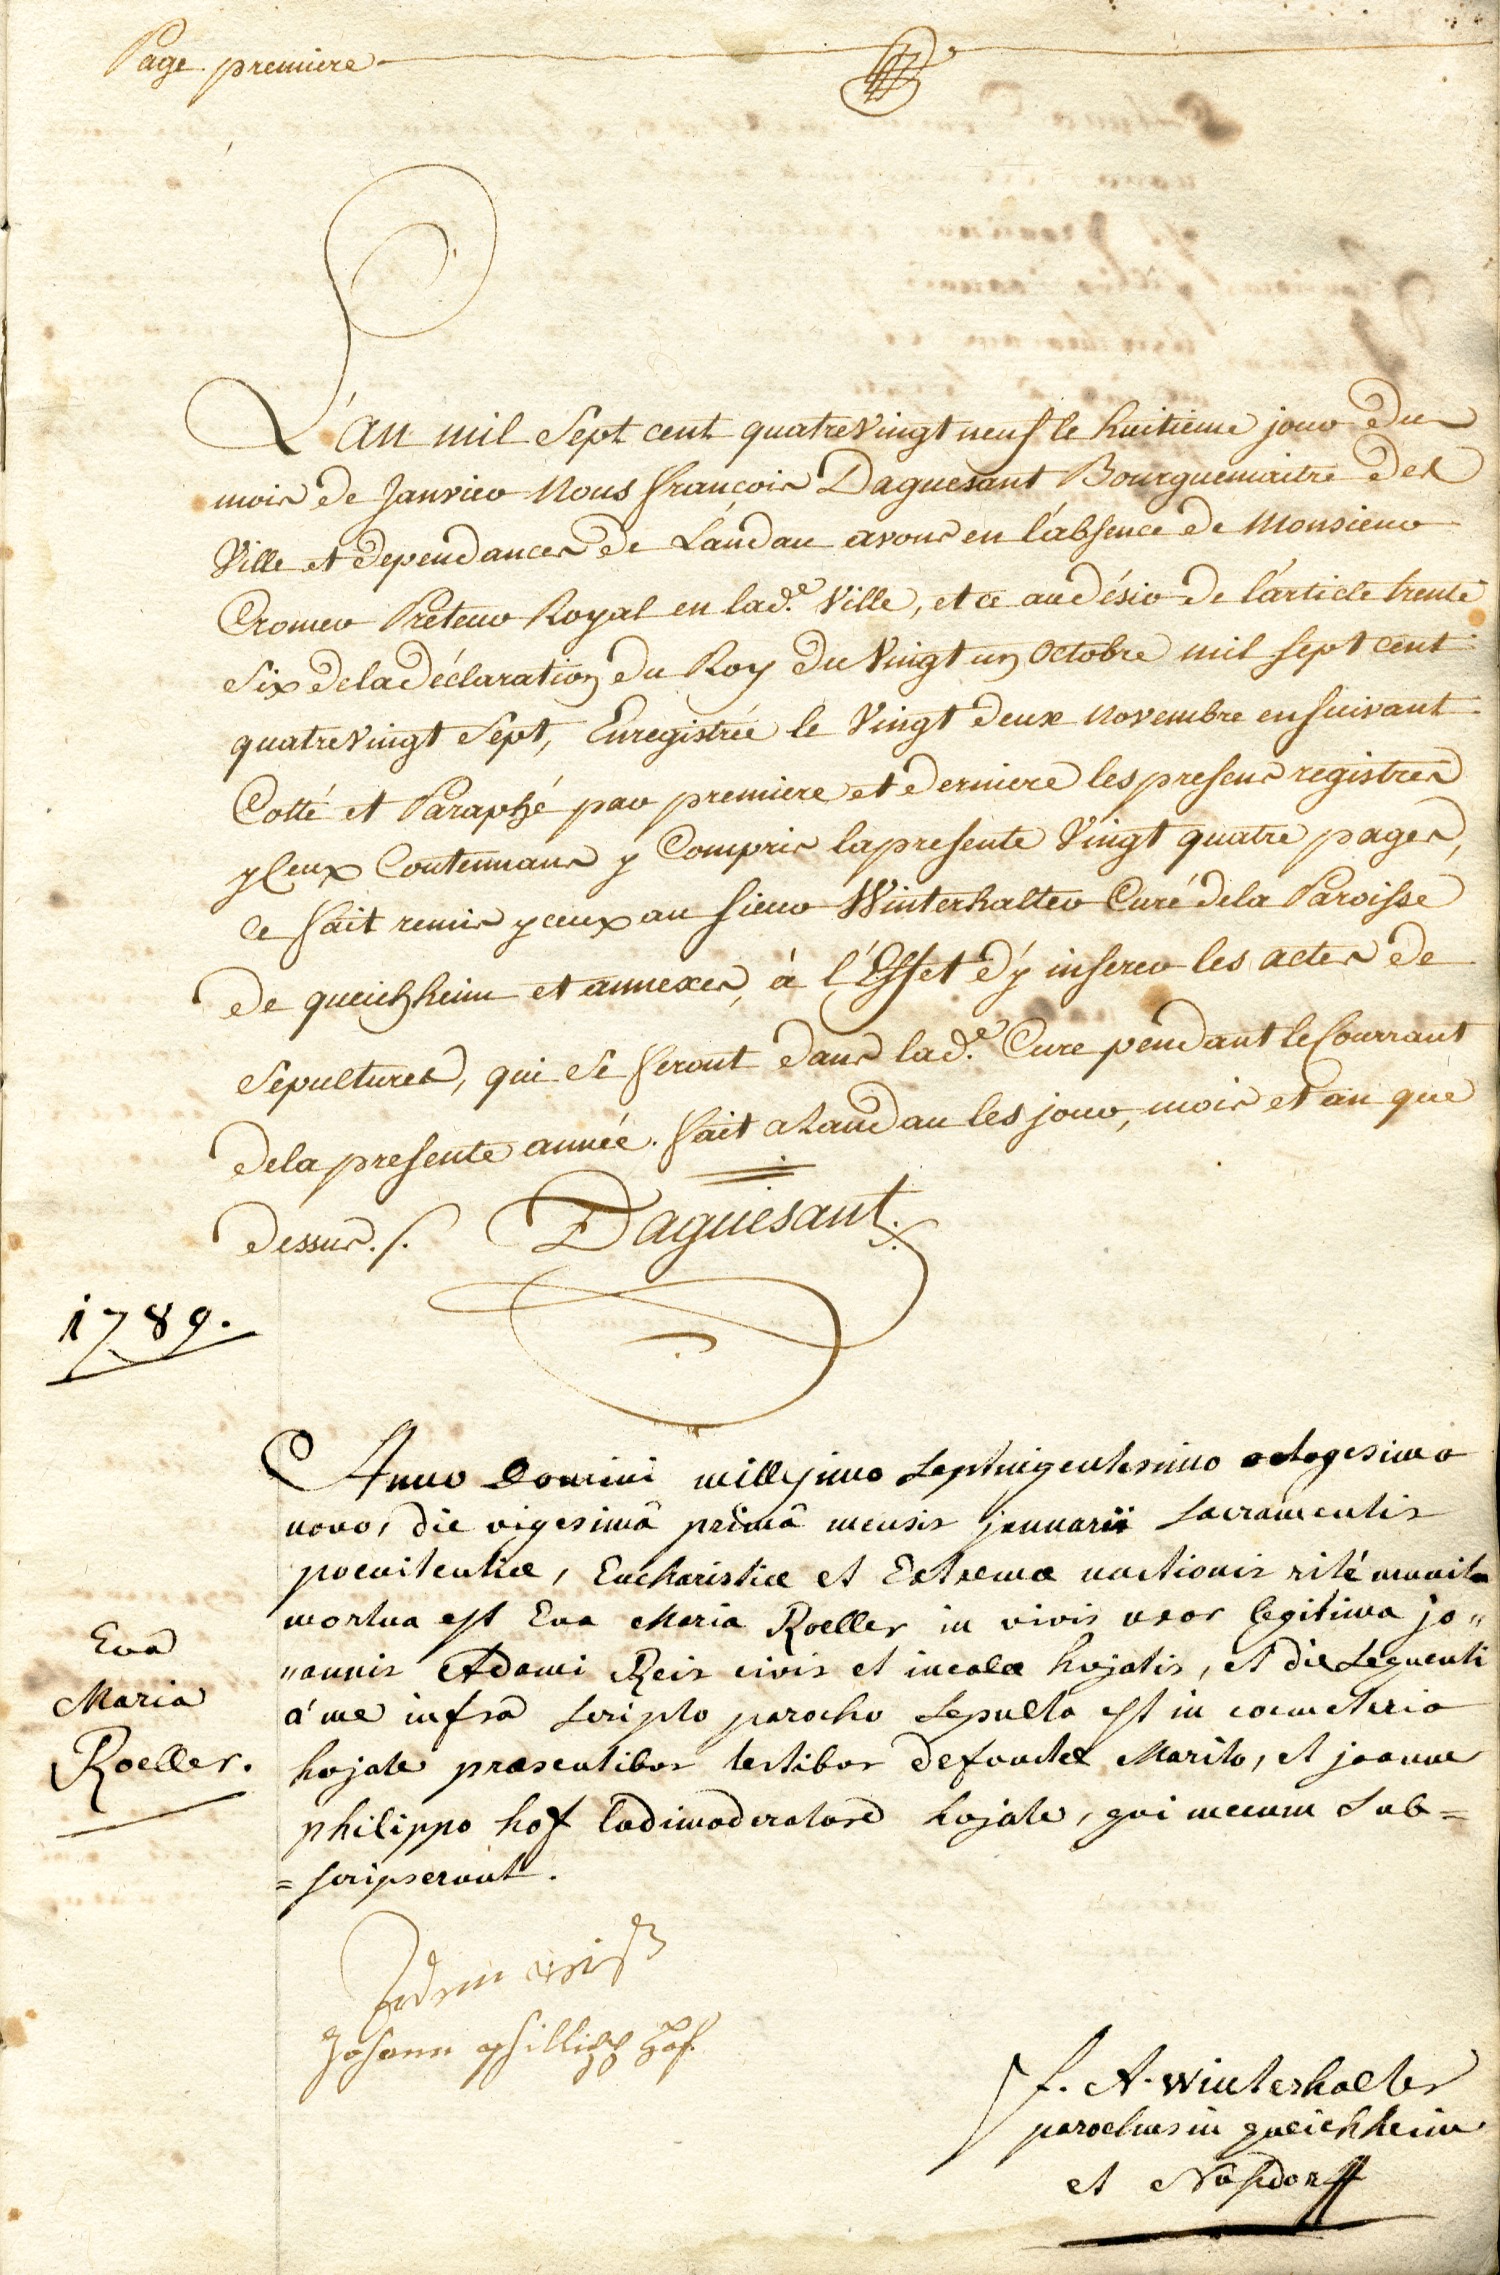 Page premiere
L'an mil Sept cent quatrevingt neuf le huitieme jour du
mois de Janvier Nous françois Daguesant Bourguemaitre des
Ville et dependances de Landau avons en l'absence de Monsieur
Cromer Préteur Royal en lad.e Ville, et ce au désir de l'article trente
Six de la déclaration du Roy du Vingt un Octobre mil sept cent
quatrevingt Sept, Enregistrée le Vingt deux Novembre ensuivant
Cotté et Paraphé par premiere et derniere les presens registres
yceux Contennans y Compris la presente Vingt quatre pages,
ce fait remis yceux au sieur Winterhalter Curé de la Paroisse
de queichheim et annexes, à l'Effet d'y inserer les actes de
Sepultures, qui se feront dans lad.e Cure pendant le Courrant
de la presente année. fait a Landau les jour, mois et an que
dessus./.
Daguesant.
1789.
Anno Domini millesimo Septingentesimo octogesimo
novo, die vigesimâ primâ mensis januarii Sacramentis
poenitentiæ, Eucharistiæ et Extremæ unctionis rité munita
mortua est Eva Maria Roeller in vivis uxor legitima jo„
„annis Adami Reis civis et incolæ hojatis, et die Sequenti
á me infrà Scripto parocho Sepulta est in coemeterio
hojate præsentibus testibus defunctæ Marito, et joanne
philippo hof ludimoderatore hojate, qui mecum Sub=
=scripserunt.
Eva
Maria
Roeller.
Adam Reiß
Johann Phillipp Hof.
f. A. Winterhalter
parochus in queichheim
et Nusdorff